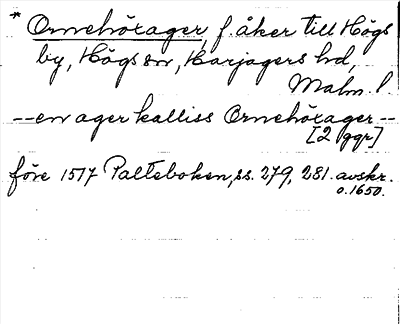 * Ornehöxager, f. åker till Högs
by, Högs sn, Harjagers hd,
Malm. l.
-- en ager kalliss Ornehöxager --
[2 ggr]
före 1517 Palteboken, ss. 279, 281. avskr.
o. 1650.